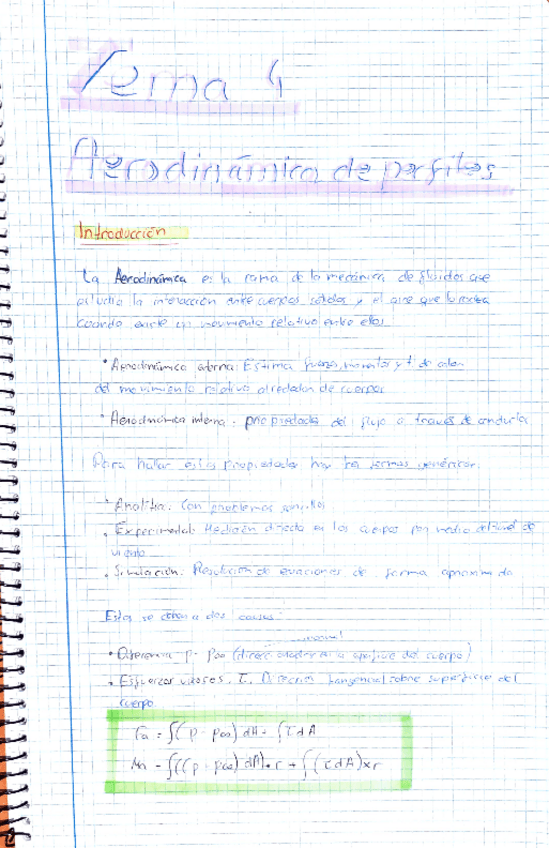 Tema 4
Aerodinámica de perfiles
Introducción
La Aerodinámica es la rama de la mecánica de fluidos que
estudia la interacción entre cuerpos sólidos y el aire que lo rodea
cuando existe un movimiento relativo entre ellos
• Aerodinámica externa: Estima fuerzas, momentos y de calor
del movimiento relativo alrededor de cuerpos
• Aerodinámica interna: propiedades del flujo a través de conducto
Para hallar estas propiedades hay tres formas genéricas:
• Analítica: Con problemas sencillos
• Experimental: Medición directa en los cuerpos por medio del túnel de
viento
• Simulación: Resolución de ecuaciones de forma aproximada
Estas se deben a dos causas:
normal
• Diferencia p - p∞ (direc. a superficie del cuerpo)
• Esfuerzos viscosos, τ. Dirección tangencial sobre superficie del
cuerpo
Fa = ∫(p - p∞) dA - ∫τ dA
Ma = ∫((p - p∞) dA) • r + ∫(τ dA) x r